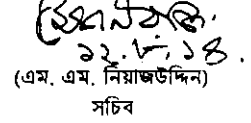 ১২.৮.১৪.
(এম. এম. নিয়াজউদ্দিন)
সচিব